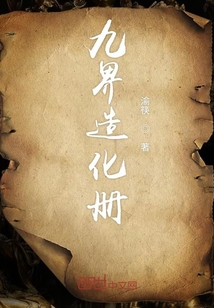 九界造化册
渝筱
著
中文网